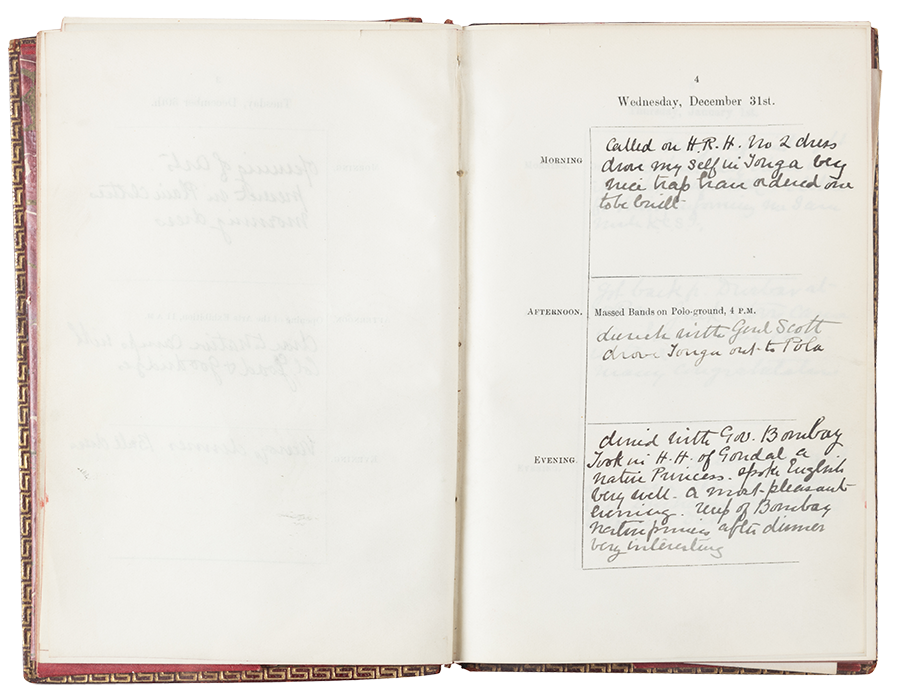 4
Wednesday, December 31st.
MORNING
Called on H.R.H. No 2 dress
drove my self in Tonga very
nice trap have ordered one
to be built
AFTERNOON.
Massed Bands on Polo-ground, 4 P.M.
lunch with Genl Scott
drove Tonga out to Polo
EVENING.
dined with Gov. Bombay
Took in H.H. of Gondal a
native Princess. spoke English
very well - a most pleasant
evening. of Bombay
native princes after dinner
very interesting